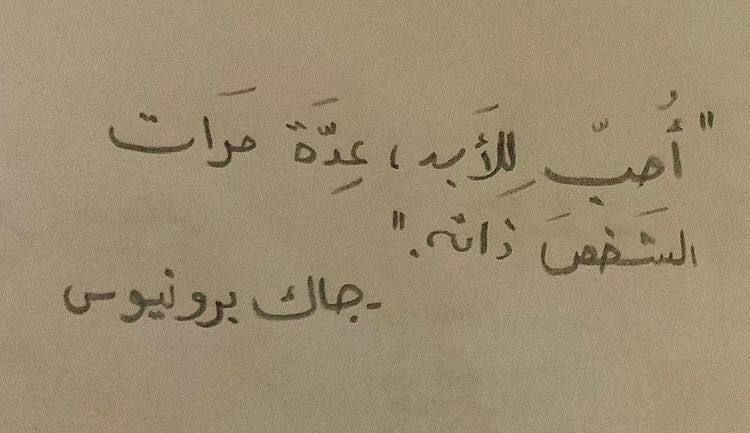 "أُحبّ لِلأَبد، عِدّة مَرات
الشَخصَ ذَاته."
-جاك برونيوس